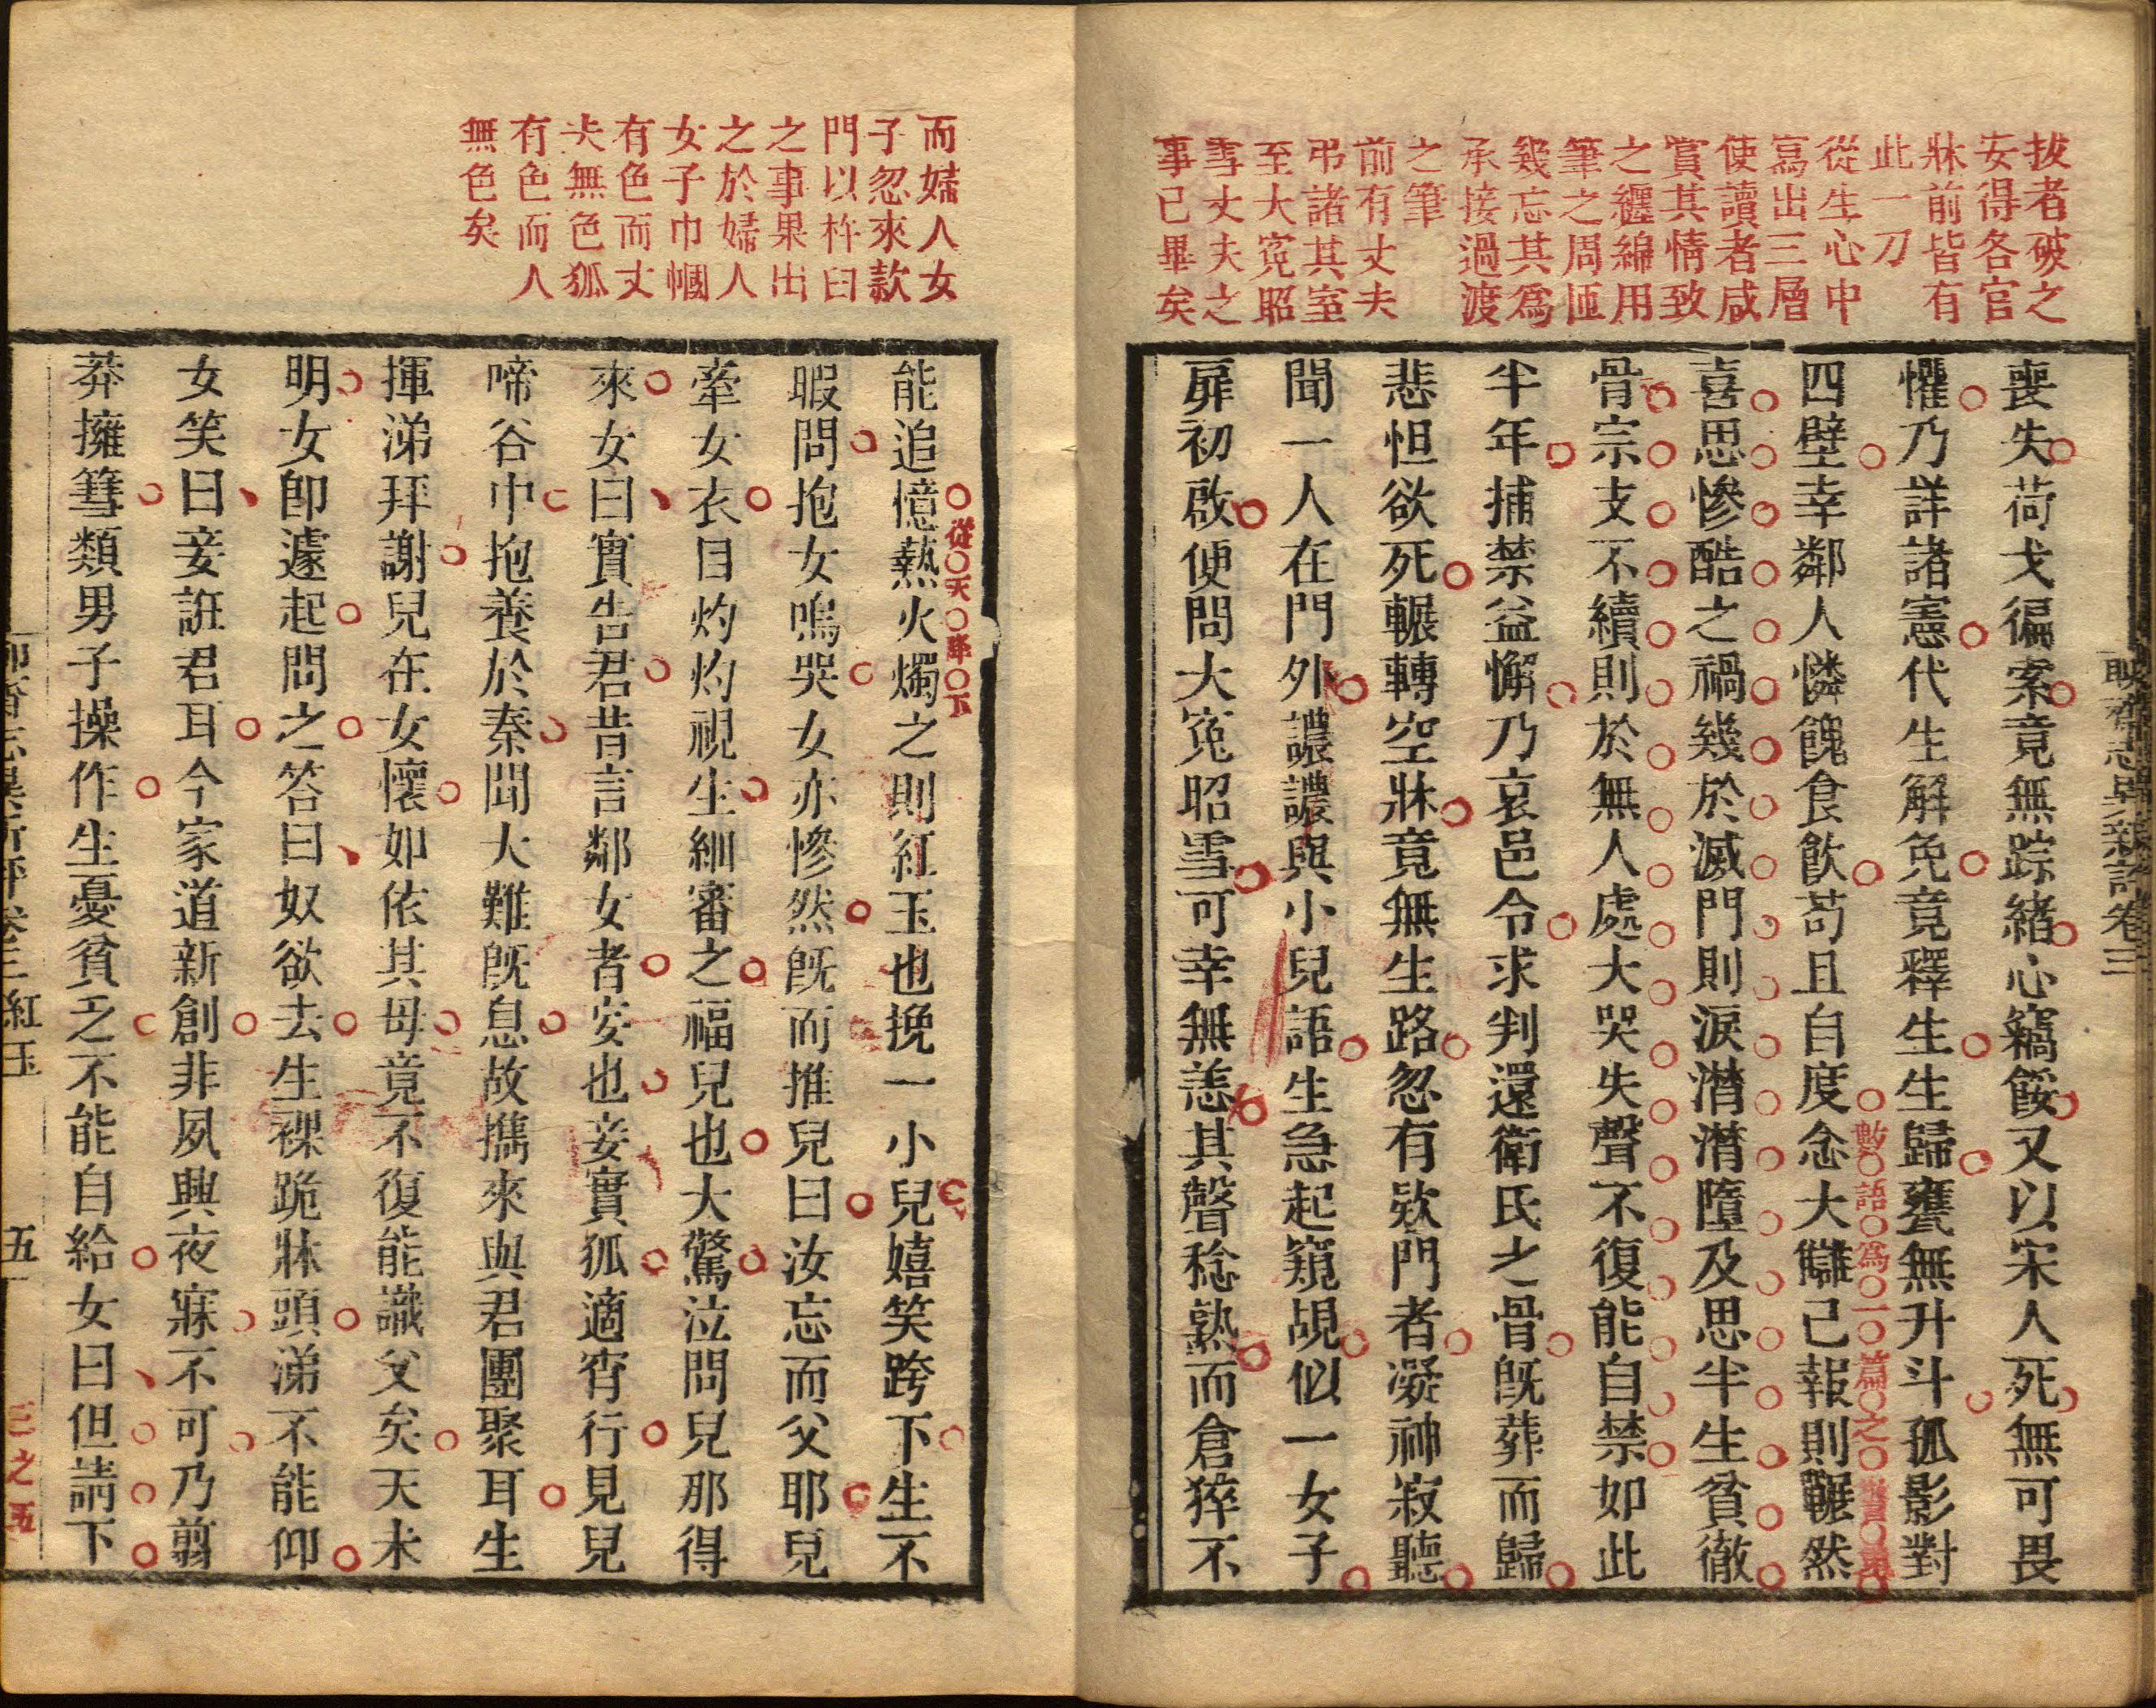 拔者破之
安得各官
牀前皆有
此一刀
從生心中
寫出三層
使讀者咸
賞其情致
之纏綿用
筆之周匝
幾忘其爲
承接過渡
之筆
前有丈夫
弔諸其室
至大寃昭
雪丈夫之
事已畢矣
聊齋志異新評卷三
喪失荷戈徧索竟無踪緒心竊餒又以宋人死無可畏
懼乃詳諸憲代生解免竟釋生生歸甕無升斗孤影對
四壁幸鄰人憐餽食飲苟且自度念大讎已報則囅然
數語爲一篇之
喜思慘酷之禍幾於滅門則淚潸潸墮及思半生貧徹
骨宗支不續則於無人處大哭失聲不復能自禁如此
半年捕禁益懈乃哀邑令求判還衛氏之骨旣葬而歸
悲怛欲死輾轉空牀竟無生路忽有欵門者凝神寂聽
聞一人在門外譨譨與小兒語生急起窺覘似一女子
扉初啟便問大寃昭雪可幸無恙其聲稔熟而倉猝不
而婦人女
子忽來款
門以杵臼
之事果出
之於婦人
女子巾幗
有色而丈
夫無色狐
有色而人
無色矣
能追憶爇火燭之則紅玉也挽一小兒嬉笑跨下生不
從天降下
暇問抱女嗚哭女亦慘然旣而推兒曰汝忘而父耶兒
牽女衣目灼灼視生細審之福兒也大驚泣問兒那得
來女曰實告君昔言鄰女者妄也妾實狐適宵行見兒
啼谷中抱養於秦聞大難旣息故攜來與君團聚耳生
揮涕拜謝兒在女懷如依其母竟不復能識父矣天未
明女卽遽起問之答曰奴欲去生裸跪牀頭涕不能仰
女笑曰妾誑君耳今家道新創非夙興夜寐不可乃翦
莽擁篲類男子操作生憂貧乏不能自給女曰但請下
聊齋志異新評卷三 紅玉 五
三之五